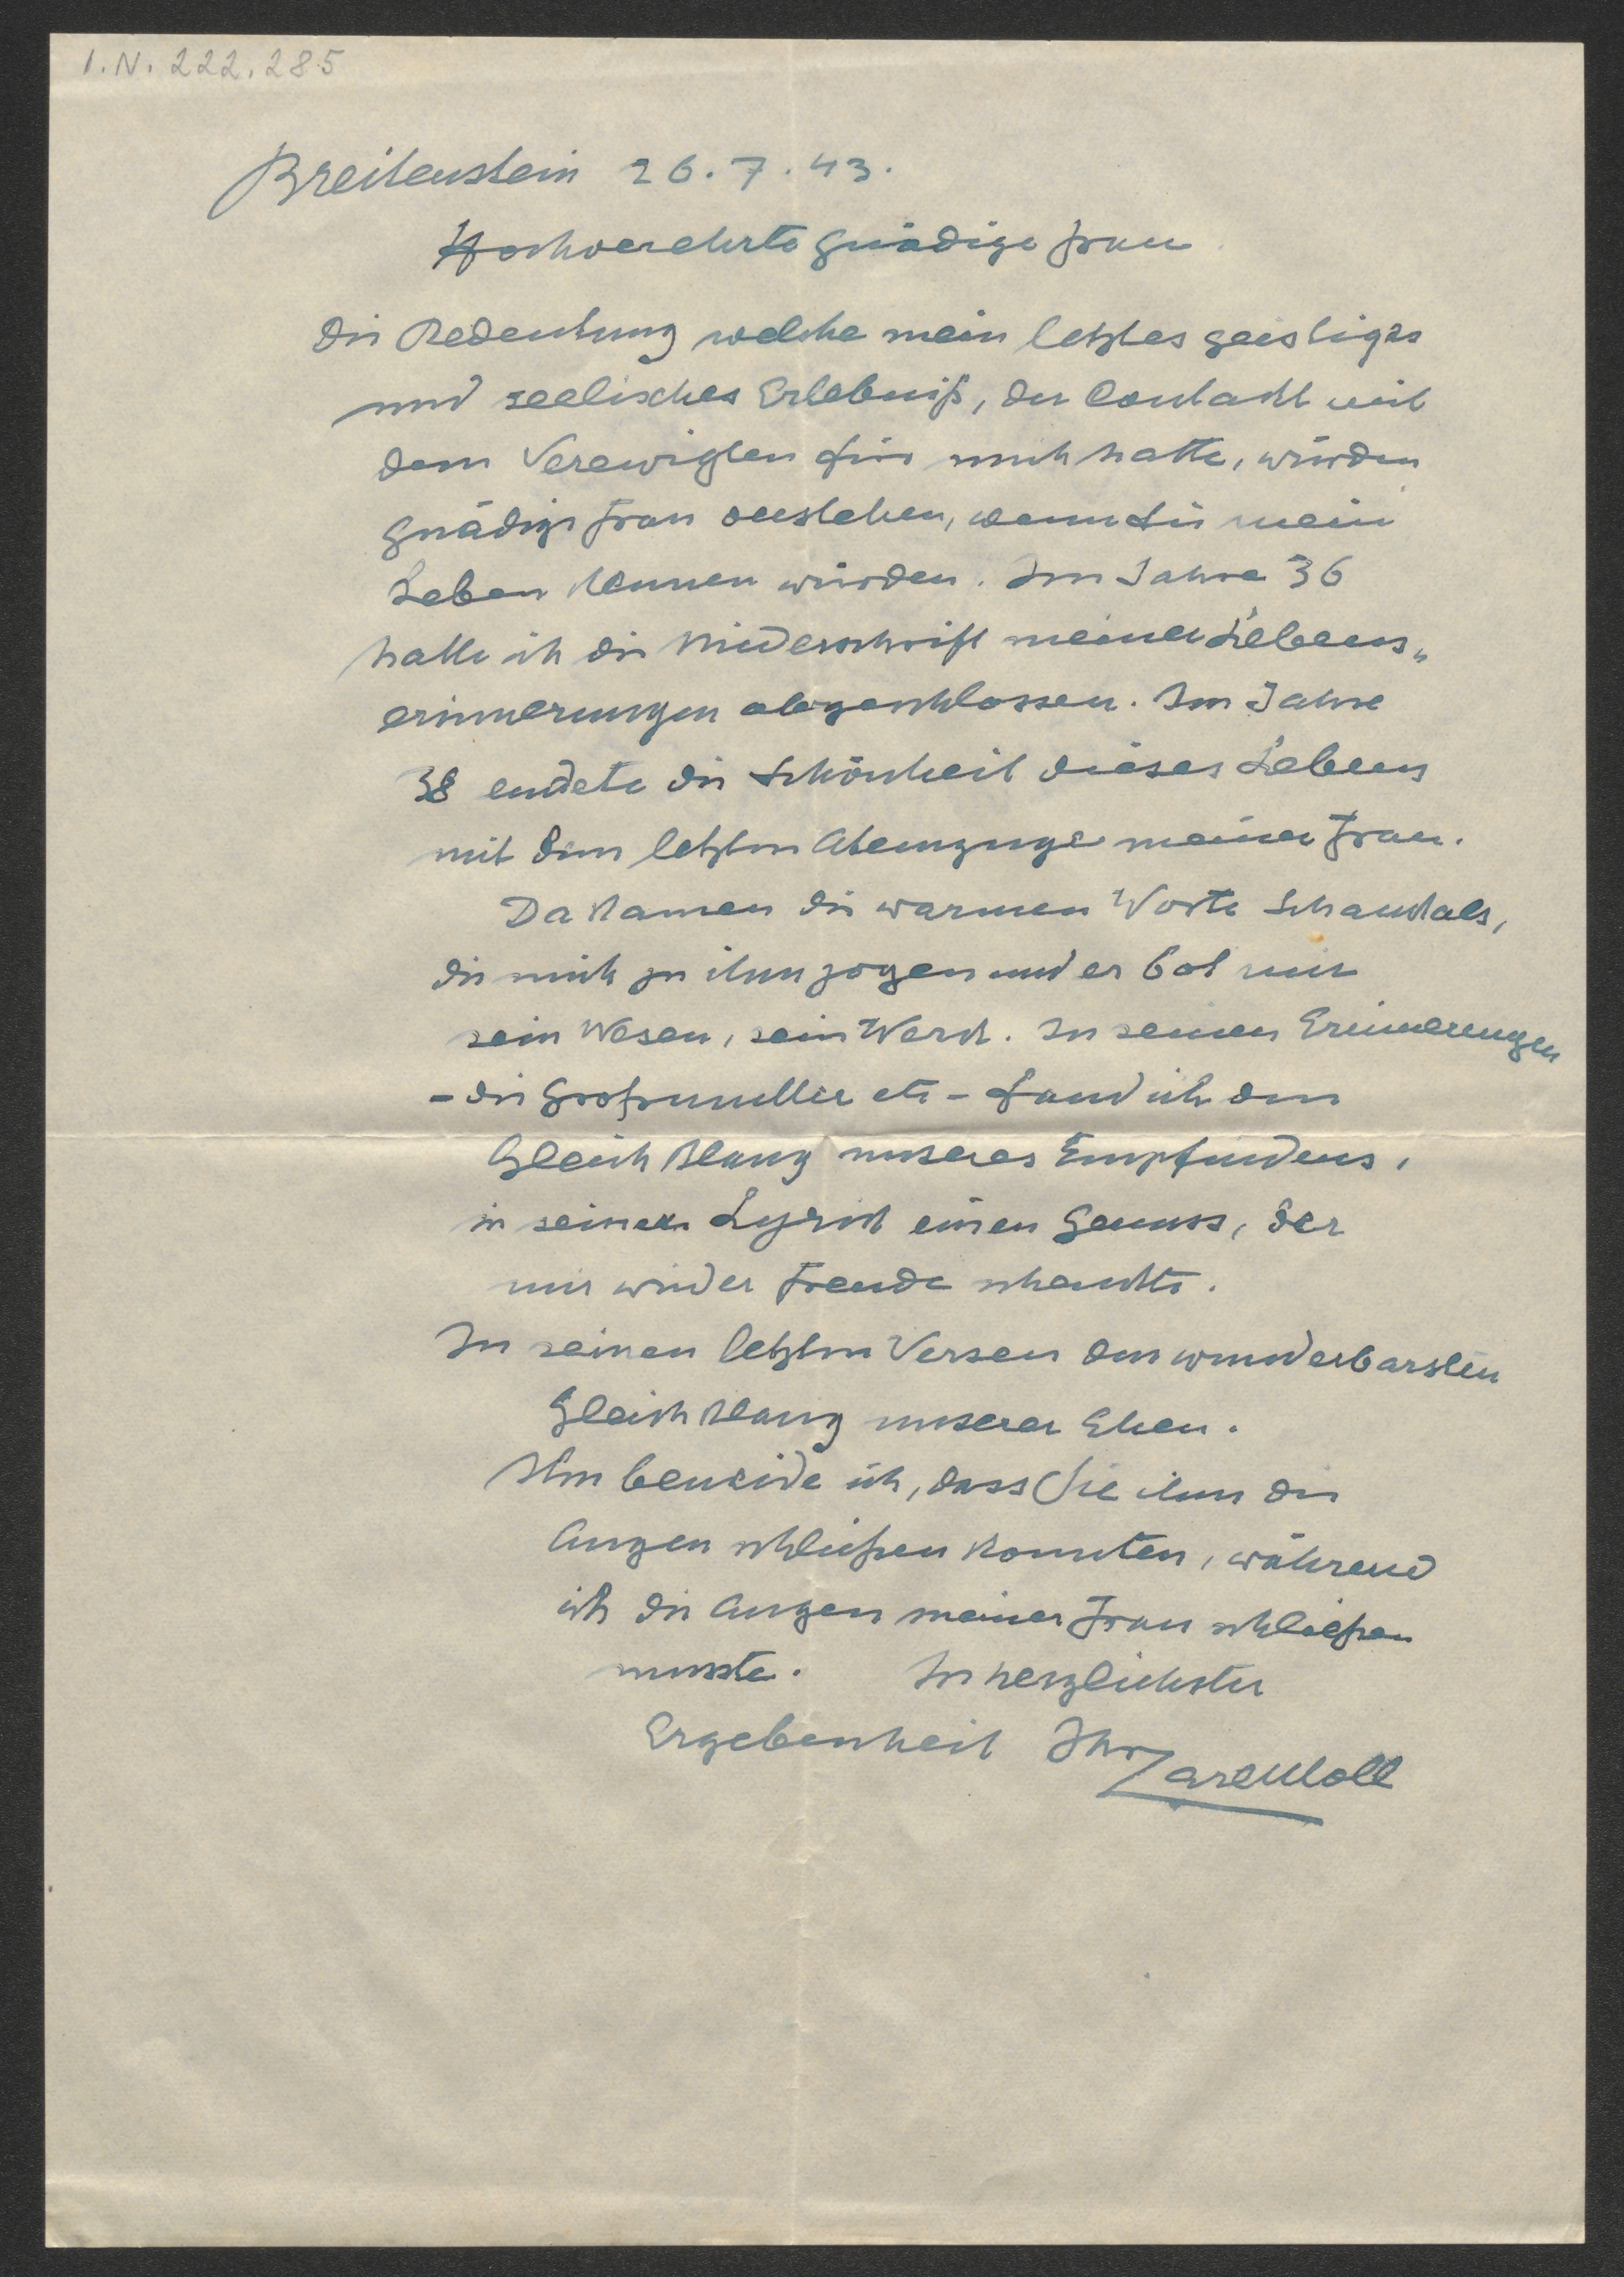 I.N. 222.285
Breitenstein 26.7.43.
Hochverehrte gnädige Frau
Die Bedeutung welche mein letztes geistiges
und seelisches Erlebniß, der Contackt mit
dem Verewigten für mich hatte, würden
gnädige Frau verstehen, wenn Sie mein
Leben kennen würden. Im Jahre 36
hatte ich die Niederschrift meiner Lebens„
erinnerungen abgeschlossen. Im Jahre
38 endete die Schönheit dieses Lebens
mit dem letzten Atemzuge meiner Frau.
Da kamen die warmen Worte Schaukals,
die mich zu ihm zogen und er bot mir
sein Wesen, sein Werck. In seinen Erinnerungen
- die Großmutter etc - fand ich den
Gleichklang unseres Empfindens,
in seiner Lyrick einen Genuss, der
mir wieder Freude schenckte.
In seinen letzten Versen den wunderbarsten
Gleichklang unserer Ehen.
Ihm beneide ich, dass Sie ihm die
Augen schließen konnten, während
ich die Augen meiner Frau schließen
musste. In herzlichster
Ergebenheit Ihr
Carl Moll